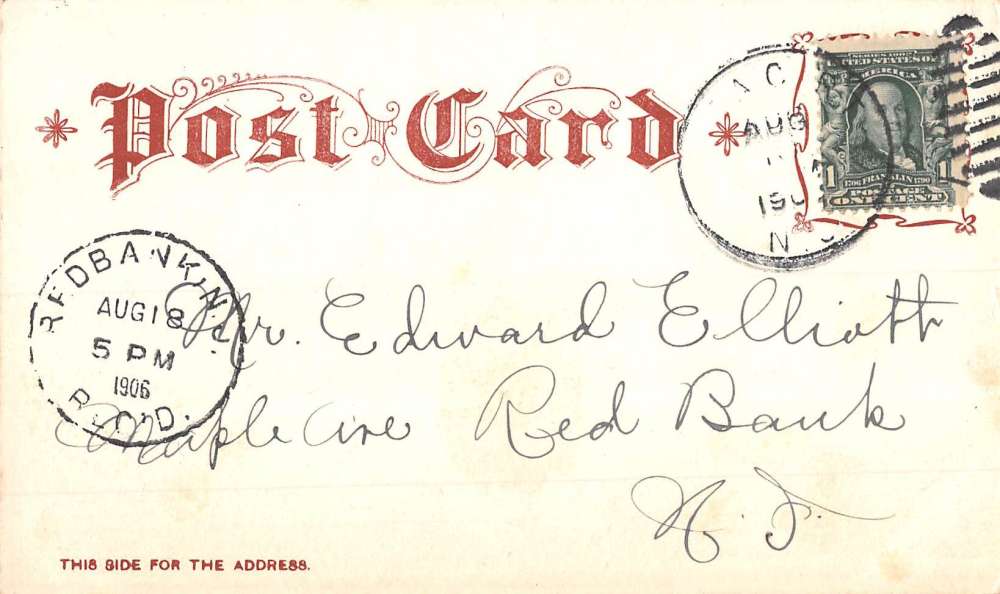 Post Card
SERIES 1902
UNITED STATES OF
AMERICA
1 1706 FRANKLIN 1790 1
POSTAGE
ONE CENT
AUG
190
N
RED BANK, N.
AUG 18
5 PM
1906
REC'D.
Mr. Edward Elliott
Maple Ave Red Bank
N. J.
THIS SIDE FOR THE ADDRESS.